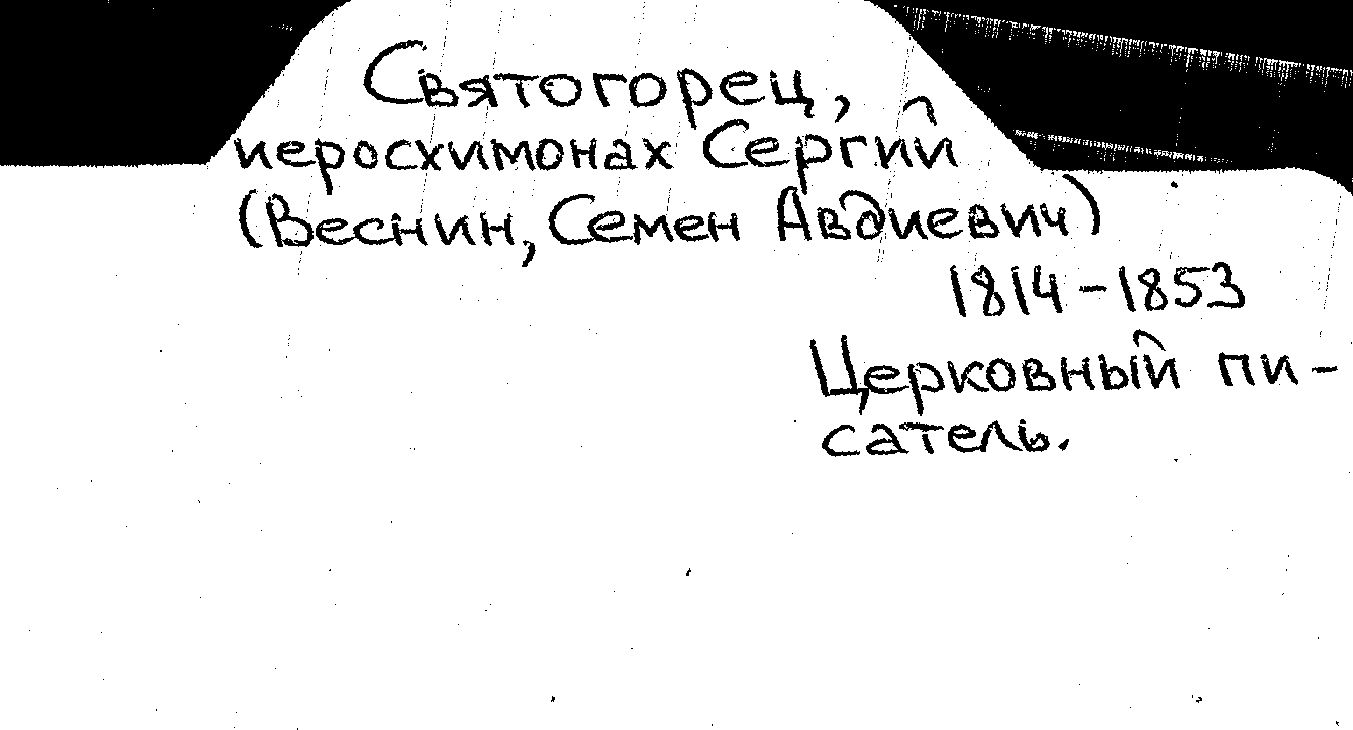 Святогорец,
иеросхимонах Сергий
(Веснин, Семен Авдиевич)
1814-1853
Церковный пи-
сатель.